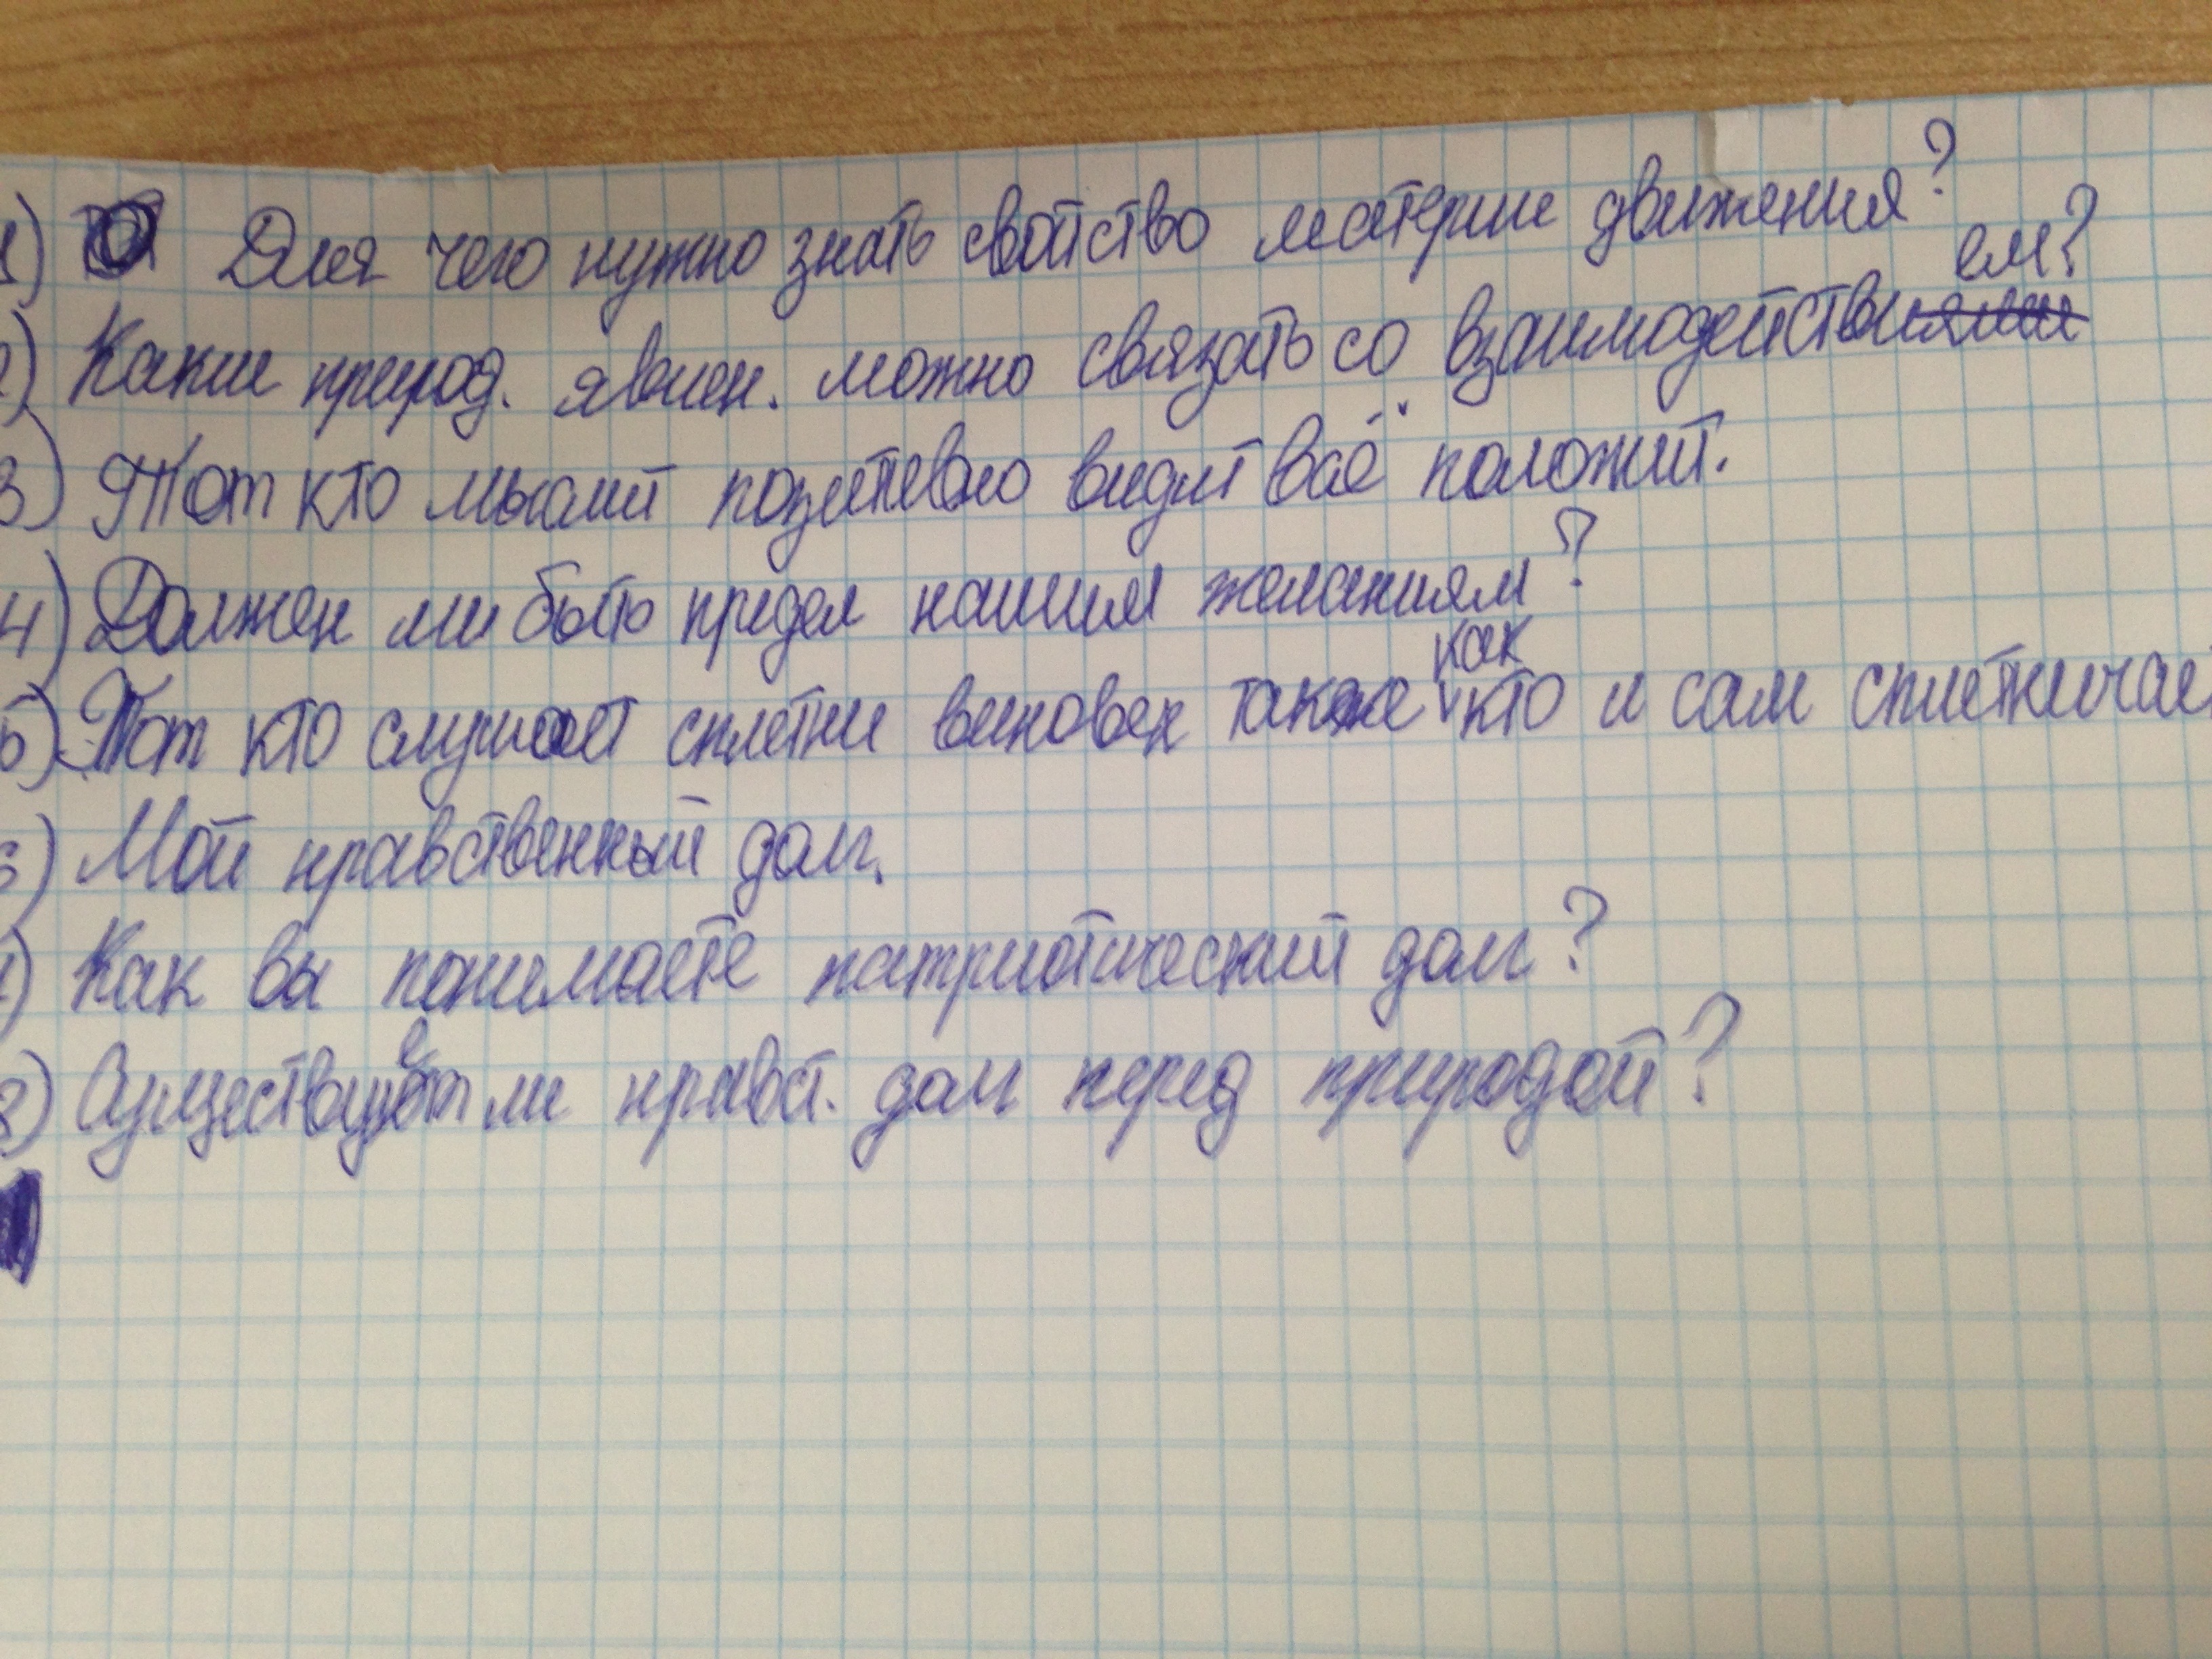 1) Для чего нужно знать свойство материи движения?
2) Какие природ. явлен. можно связать со взаимодействием?
3) Тот кто мыслит позитевно видит всё положит.
4) Должен ли быть предел нашим желаниям?
5) Тот кто слушает сплетни виновен также как кто и сам сплетничает
6) Мой нравственный долг.
1) Как вы понимаете патриотический долг?
2) Существует ли нравст. долг перед природой?